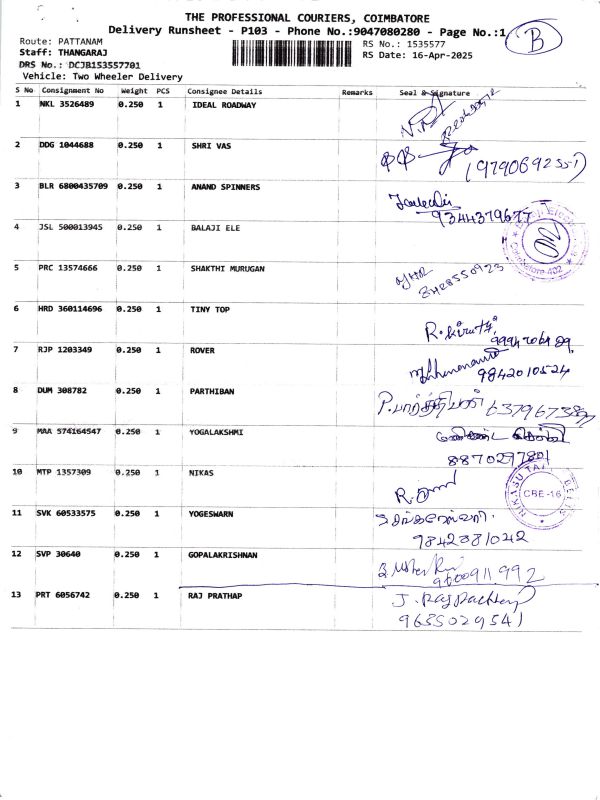 THE PROFESSIONAL COURIERS, COIMBATORE
Delivery Runsheet - P103 - Phone No.:9047080280 - Page No.:1
B
Route: PATTANAM
RS No.: 1535577
Staff: THANGARAJ
RS Date: 16-Apr-2025
DRS No.: DCJB153557701
Vehicle: Two Wheeler Delivery
S No Consignment No Weight PCS Consignee Details Remarks Seal & Signature
1 NKL 3526489 0.250 1 IDEAL ROADWAY
2 DDG 1044688 0.250 1 SHRI VAS
(9790692551)
3 BLR 6800435709 0.250 1 ANAND SPINNERS
9344379677
4 JSL 500013945 0.250 1 BALAJI ELE
Coimbatore-402
5 PRC 13574666 0.250 1 SHAKTHI MURUGAN
6 HRD 360114696 0.250 1 TINY TOP
7 RJP 1203349 0.250 1 ROVER
9842010524
8 DUM 308782 0.250 1 PARTHIBAN
P.பார்த்திபன்
9 MAA 574164547 0.250 1 YOGALAKSHMI
8870297801
10 MTP 1357309 0.250 1 NIKAS
CBE-16
11 SVK 60533575 0.250 1 YOGESWARN
9842881042
12 SVP 30640 0.250 1 GOPALAKRISHNAN
9600911992
13 PRT 6056742 0.250 1 RAJ PRATHAP
9655029541